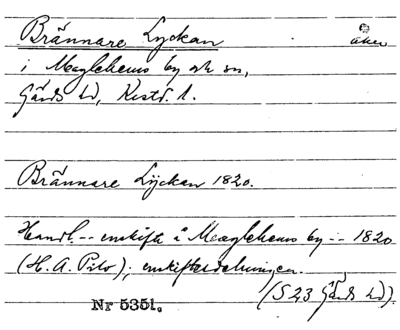 Brännare Lyckan åker
i Maglehems by och sn,
Gärds hd, Krist. l.
Brännare Lÿckan 1820.
Handl. -- enskifte å Maglehems by -- 1820
(H. A. Pilo); enskiftesdelningen.
(S 23 Gärds hd).
Nr 5351.